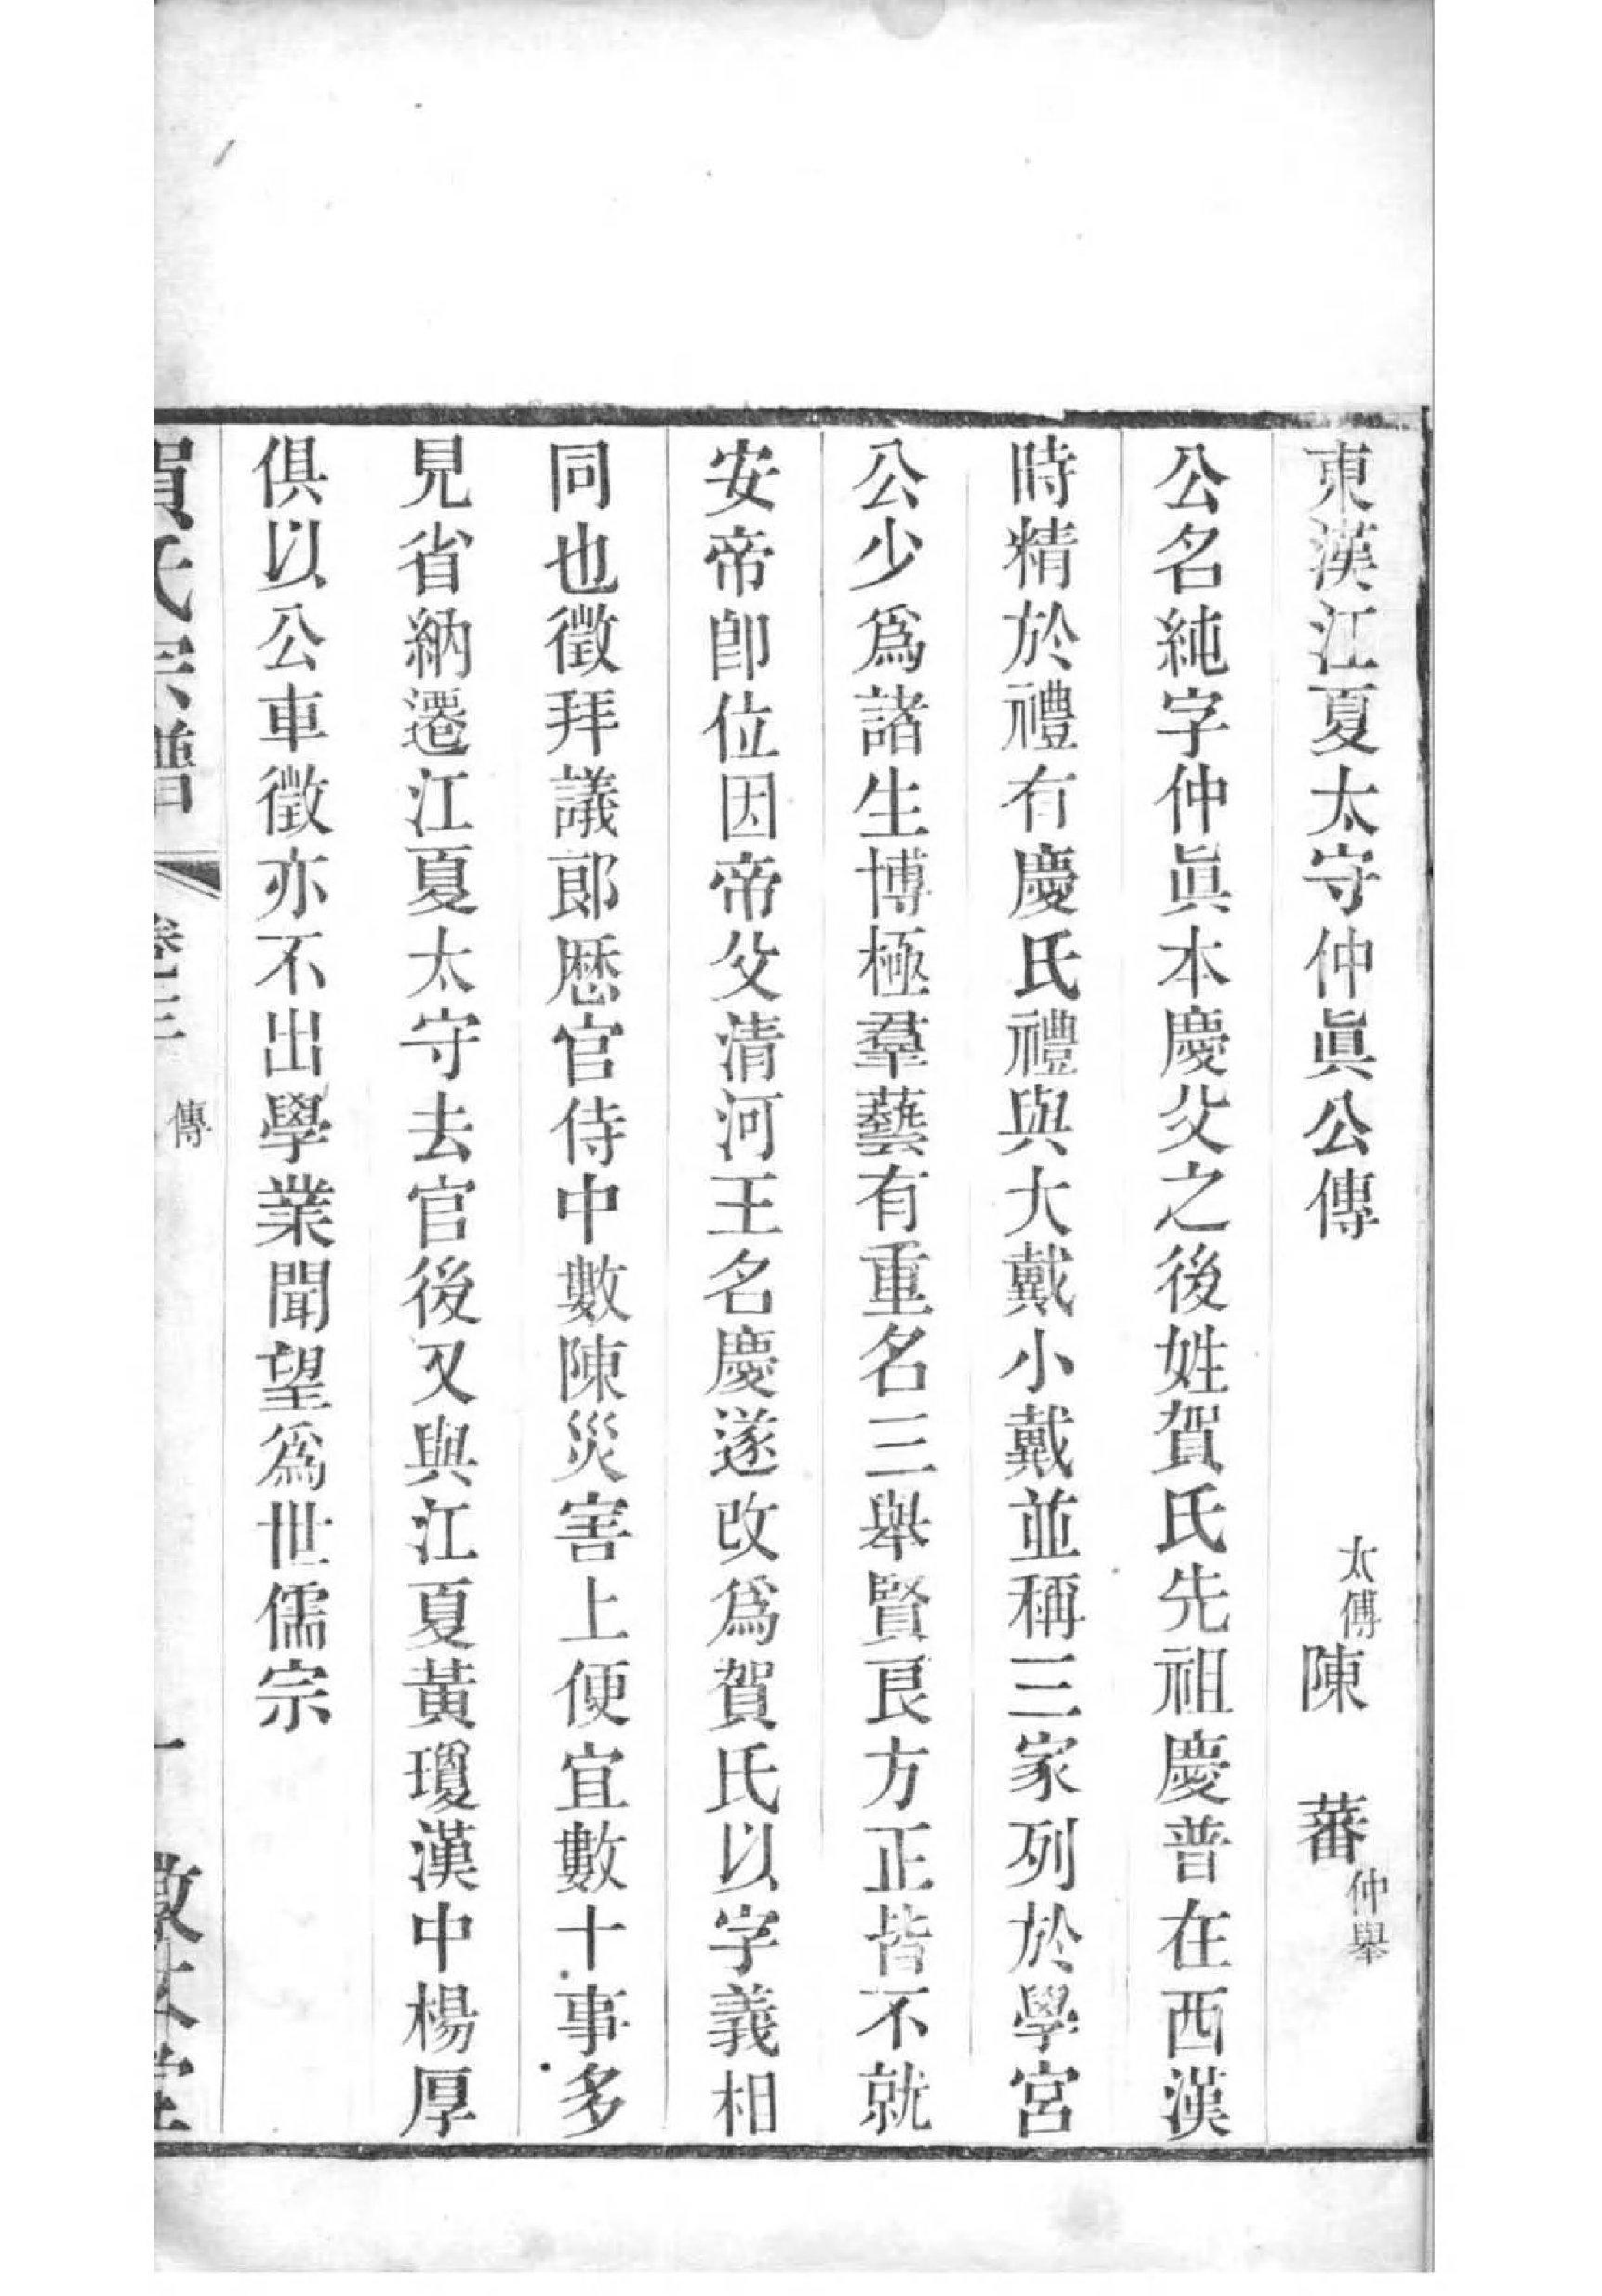 東漢江夏太守仲眞公傳 太傅陳 蕃仲舉
公名純字仲眞本慶父之後姓賀氏先祖慶普在西漢
時精於禮有慶氏禮與大戴小戴並稱三家列於學宮
公少爲諸生博極羣藝有重名三舉賢良方正皆不就
安帝卽位因帝父清河王名慶遂改爲賀氏以字義相
同也徵拜議郎歷官侍中數陳災害上便宜數十事多
見省納遷江夏太守去官後又與江夏黃瓊漢中楊厚
俱以公車徵亦不出學業聞望爲世儒宗
賀氏宗譜 卷三 傳 一